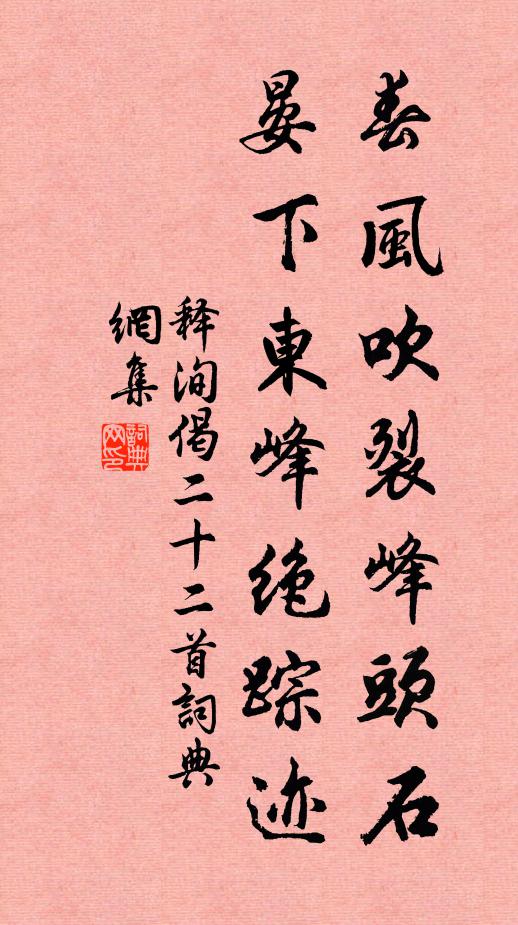 春風吹裂峰頭石
晏下東峰絶踪迹
释洵偈二十二首詞典
網集
詞典網印